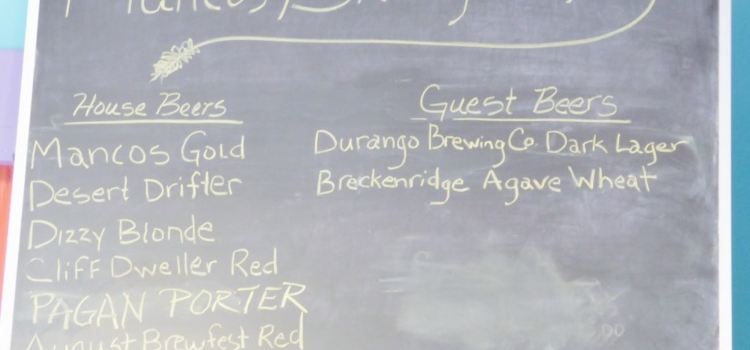 Mancos
House Beers
Mancos Gold
Desert Drifter
Dizzy Blonde
Cliff Dweller Red
PAGAN PORTER
August Brewfest Red
Guest Beers
Durango Brewing Co. Dark Lager
Breckenridge Agave Wheat